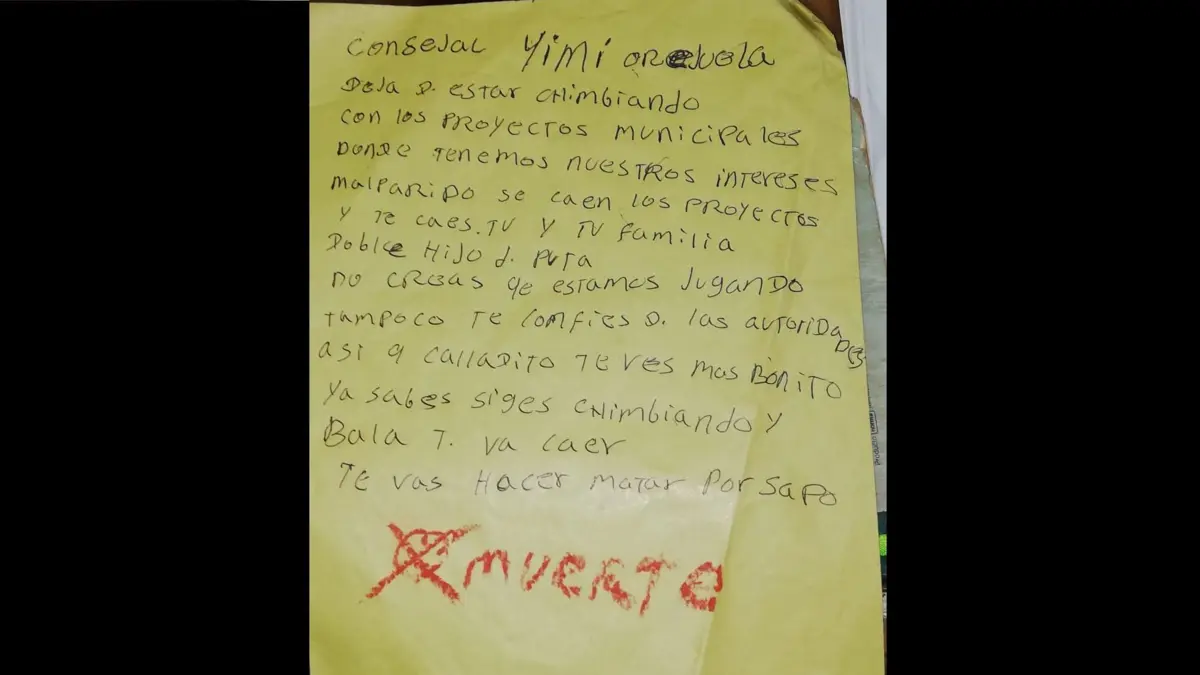 consejal Yimi orejuela
Deja D. estar chimbiando
con los PROYECTOS municipales
Donde tenemos nuestros intereses
malparido se caen los PROYECTOS
y Te caes. TU Y TU familia
Doble Hijo d. PUTA
no creas qe estamos Jugando
tampoco Te comfies D. las autoridades
asi q calladito Te ves mas Bonito
Ya sabes siges chimbiando y
Bala T. va caer
Te vas Hacer matar Por sapo
muerte